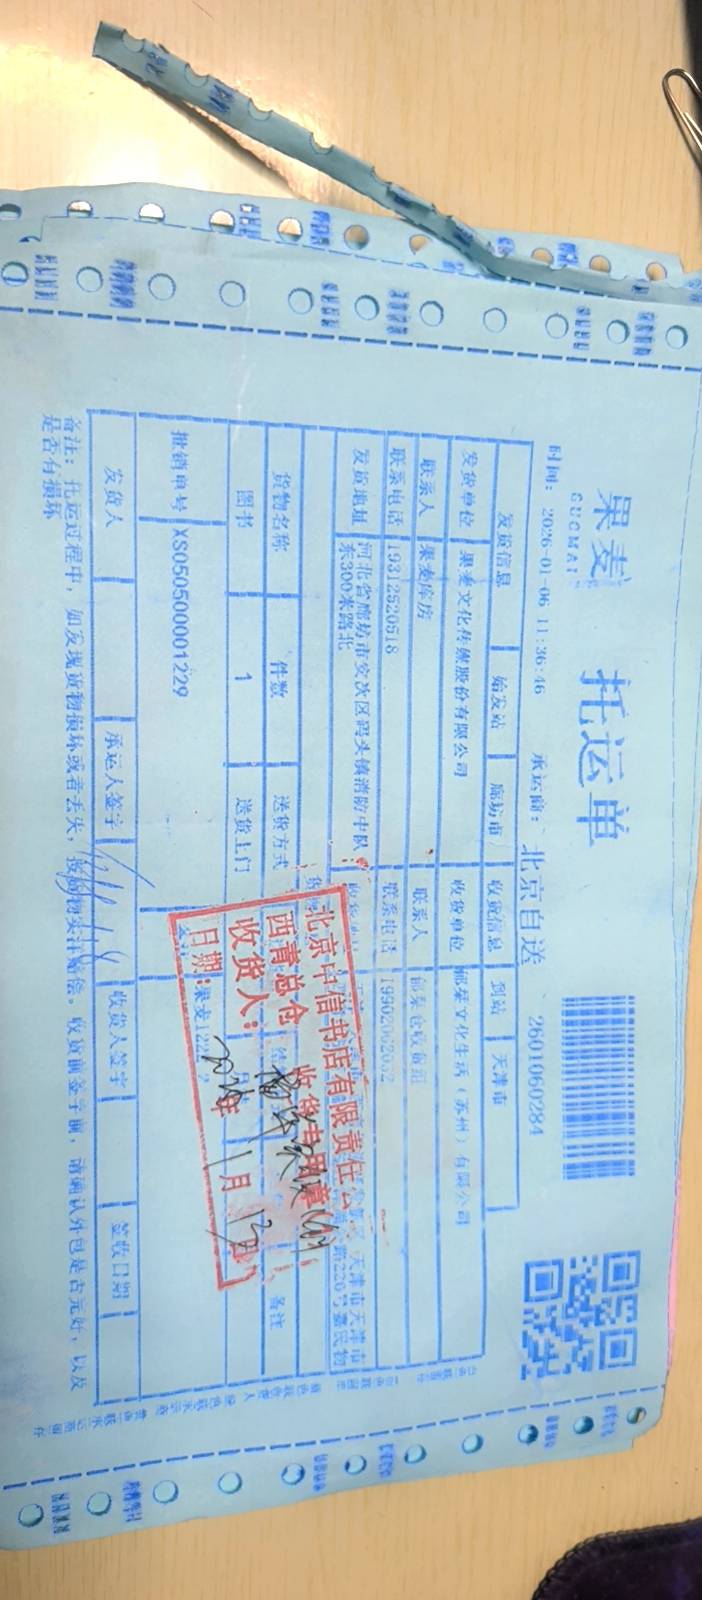 果麦
GUOMAI
托运单
时间: 2026-01-06 11:36:46 承运商: 北京自送 2601060284
发货信息 始发站 廊坊市 收货信息 到站 天津市
发货单位 果麦文化传媒股份有限公司 收货单位 郁栞文化生活(苏州)有限公司
联系人 果麦库房 联系人
联系电话 19312520518 联系电话
发货地址 河北省廊坊市安次区码头镇消防中队东300米路北 天津市天津市 路220号嘉民物
货物名称 件数 送货方式 备注
图书 1 送货上门
批销单号 XS050500001229
发货人 承运人签字 收货人签字 签收日期
备注: 托运过程中, 如发现货物损坏或者丢失, 按 赔偿。收货前签字前, 请确认外包是否完好, 以及
是否有损坏
北京中信书店有限责任公
西青总仓 收货专用章
收货人:
日期: 2026年 1月 13日